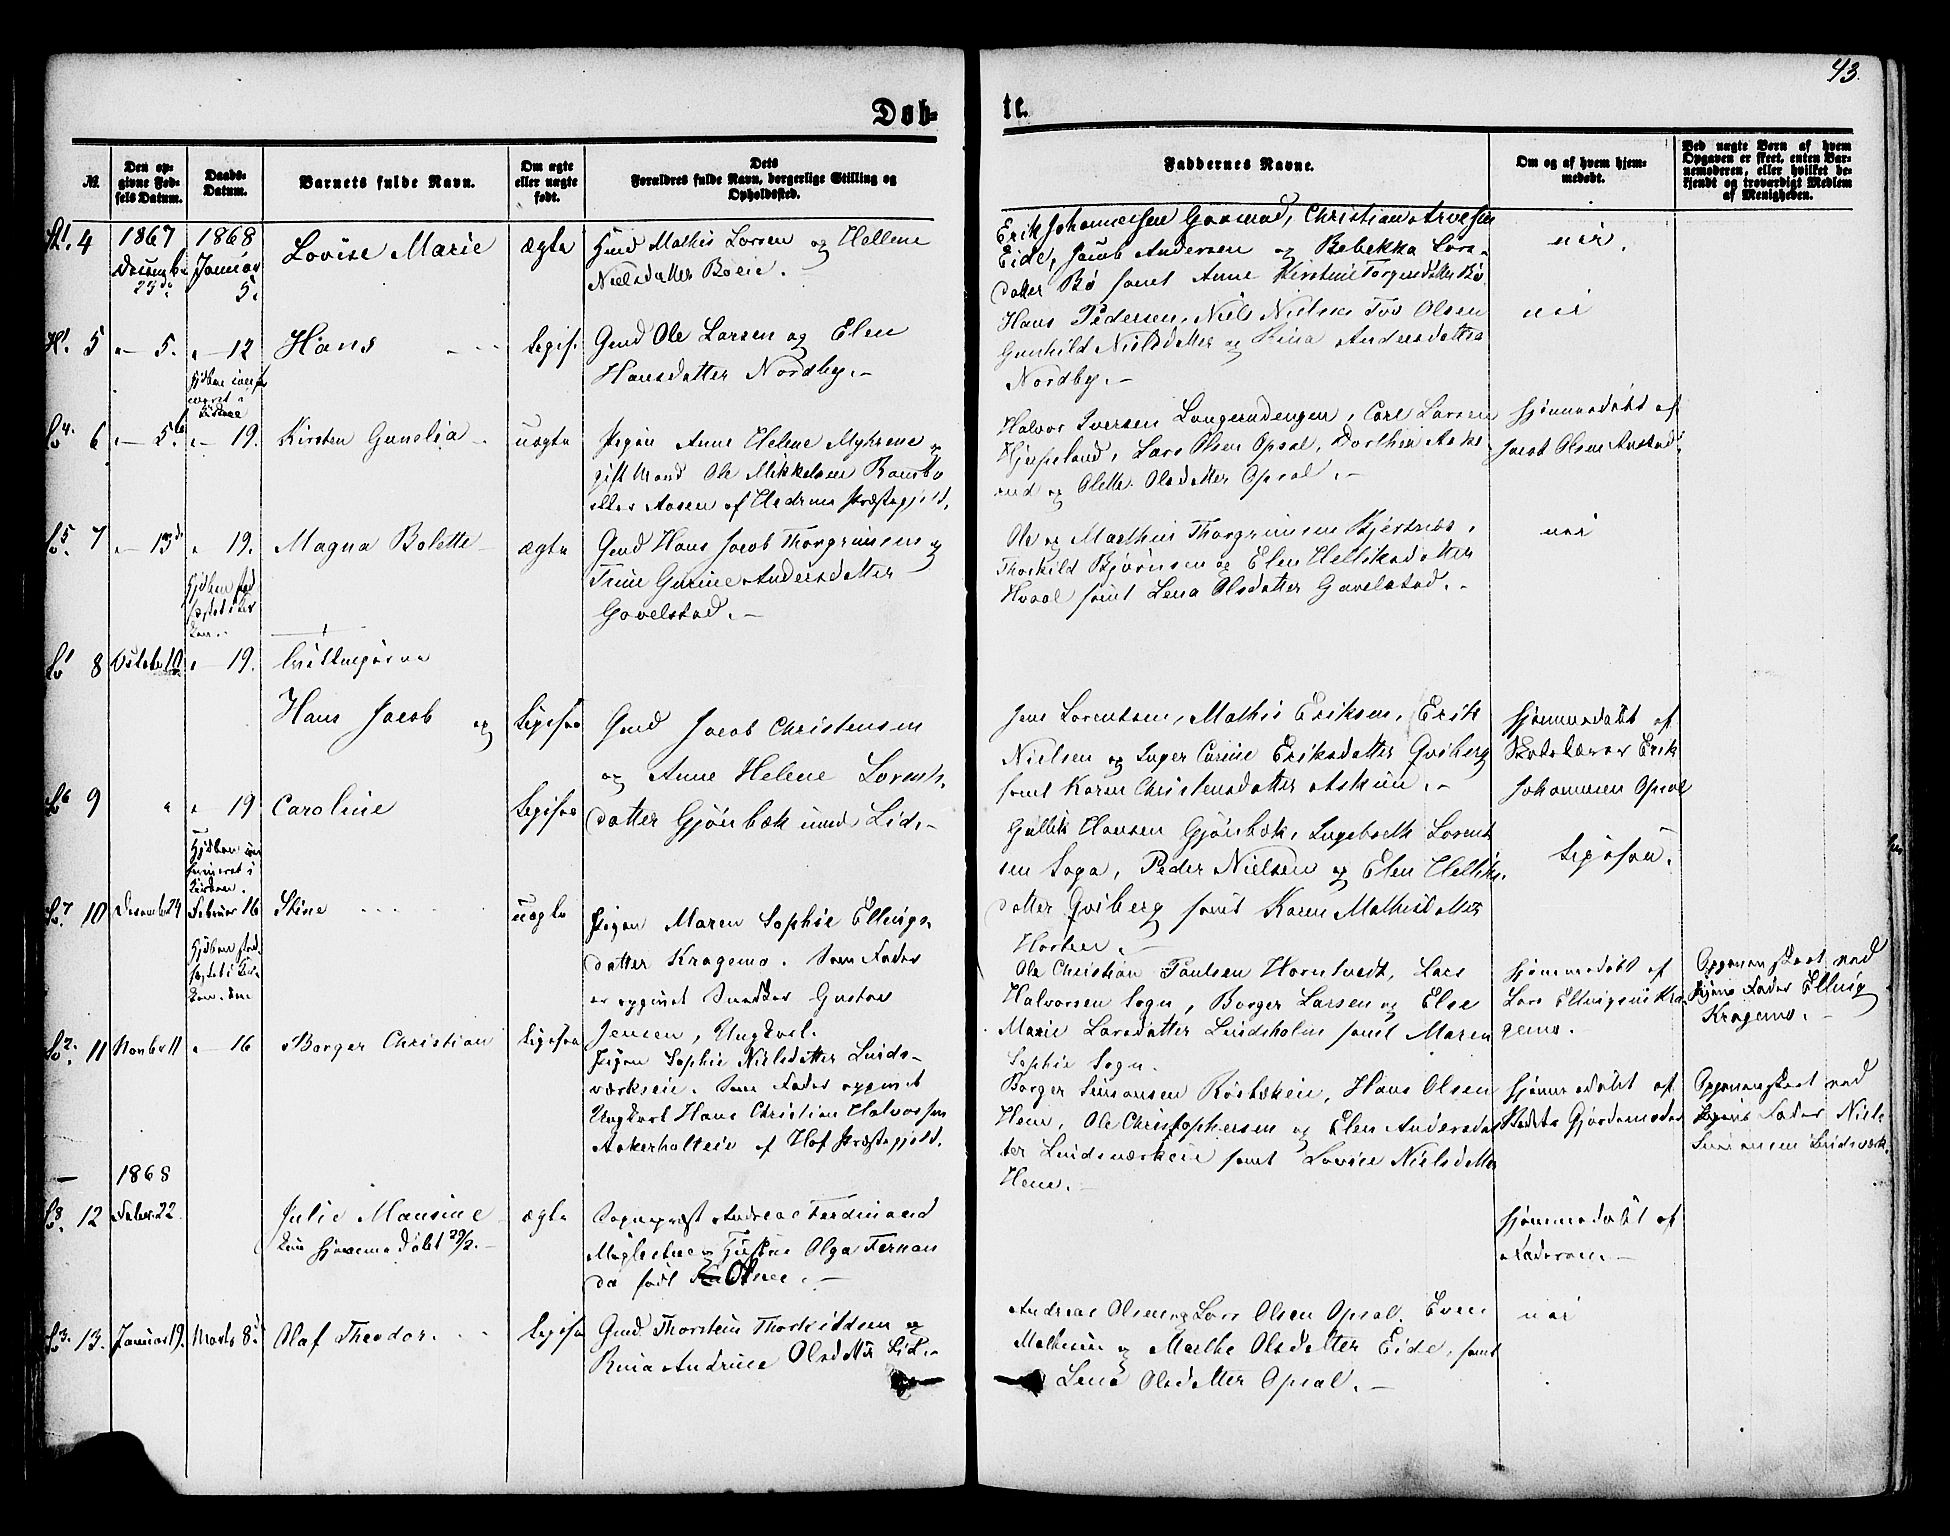 43.
Døbte.
№
Den opgivne Fødsels Datum.
Daabs-Datum.
Barnets fulde Navn.
Om ægte eller uægte født.
Dets Forældres fulde Navn, borgerlige Stilling og Opholdssted.
Faddernes Navne.
Om og af hvem hjemmedøbt.
Ved uægte Børn af hvem Opgaven er skeet, enten Barnemoderen, eller hvilket bekjendt og troværdigt Medlem af Menigheden.
4
1867
Decemb
1868
Januar
5.
Lovise Marie
ægte
Gmd Mathis Larsen og Hellene
Nielsdatter Bøeie.
Erik Johannessen Gaaserød, Christian Arvesen
Eide, Jacob Andersen og Rebekka Lars-
datter Bø samt Anne Kirstine Torgersdatter Bø.
nei.
5
" 5.
" 12
Hans
Liges.
Gmd Ole Larsen og Elen
Hansdatter Nordby.-
Hans Pedersen, Niels Nielsen Tov Olsen
Gunhild Nielsdatter og Rina Andersdatter
Nordby.-
nei
6
" 19.
Kirsten Gunelia
uægte
Pigen Anne Helene Myhrene og
gift Mand Ole Mikkelsen Rønsbo
eller Aasen af Hedrum Præstegjeld.
Halvor Iversen Langerødengen, Carl Larsen
Lars Olsen Opsal, Dorthea Aske-
rød og Olette Olsdatter Opsal.-
hjemmedøbt af
Jacob Olsen Anstad
7
" 13
" 19.
Magna Bolette
ægte
Gmd Hans Jacob Thorgrimsen og
Trine Gurine Andersdatter
Gavelstad.-
Ole og Mathias Thorgrimsen
Thorkild Bjørnsen og Elen Helliksdatter
Hvaal samt Lena Olsdatter Gavelstad.-
nei
8
" 19.
Tvillingerne
Hans Jacob og
Ligesaa
Gmd Jacob Christensen
og Anne Helene Lorents-
datter Gjønbæk under Lid.-
Jens Lorentsen, Mathis Eriksen, Erik
Nielsen og Inger Carine Eriksdatter Qviberg
samt Karen Christensdatter Askim.-
hjemmedøbt af
Skolelærer Erik
Johannesen Opsal
9
"
" 19
Caroline
Ligesaa
Gullik Hansen Gjønbæk, Ingebreth Lorent-
sen Soga, Peder Nielsen og Elen Helliks-
datter Qviberg samt Karen Mathisdatter
Ligesaa.
10
December 24
Februar 16
Stine
uægte
Pigen Maren Sophie Ellings-
datter Kragemo. Som Fader
er opgivet Snedker Gustav
Jensen, Ungkarl.
Ole Christian Paulsen Horntvedt, Lars
Halvorsen Sogn, Borger Larsen og Else
Marie Larsdatter Lindsholm samt Maren
Sophie Sogn.
hjemmedøbt af
Lars Ellingsen Kra-
gemo.
Opgaven skeet ved
Pigens Fader Elling
Kragemo.-
11
Novbr 11
" 16
Borger Christian
Ligesaa
Pigen Sophie Nielsdatter Linds-
værkseie. Som Fader opgivet
Ungkarl Hans Christian Halvorsen
Aakerholteie af Hof Præstegjeld.
Borger Simonsen Røsbækeie, Hans Olsen
Hem, Ole Christophersen og Elen Andersdat-
ter Lindsværkeie samt Lovise Nielsdatter
Hem.-
hjemmedøbt af
Stedets Gjordemoder
Opgaven skeet ved
Pigens Fader Niels
Simonsen Lindsværk.
1868
12
Febr. 22
Julie Mansine
kun hjemmedøbt 29/2.-
ægte
Sognepræst Andreas Ferdinand
Møglestue og Hustru Olga Fernan
da født Olsen.-
hjemmedøbt af
Faderen.-
13.
Januar 19.
Marts 8
Olaf Theodor.
Ligesaa
Gmd. Thorstein Thorkildsen og
Rina Andrine Olsdatter Lid.-
Andreas Olsen og Lars Olsen Opsal. Even
Mathisen og Malhe Olsdatter Eide, samt
Lena Olsdatter Opsal.-
nei